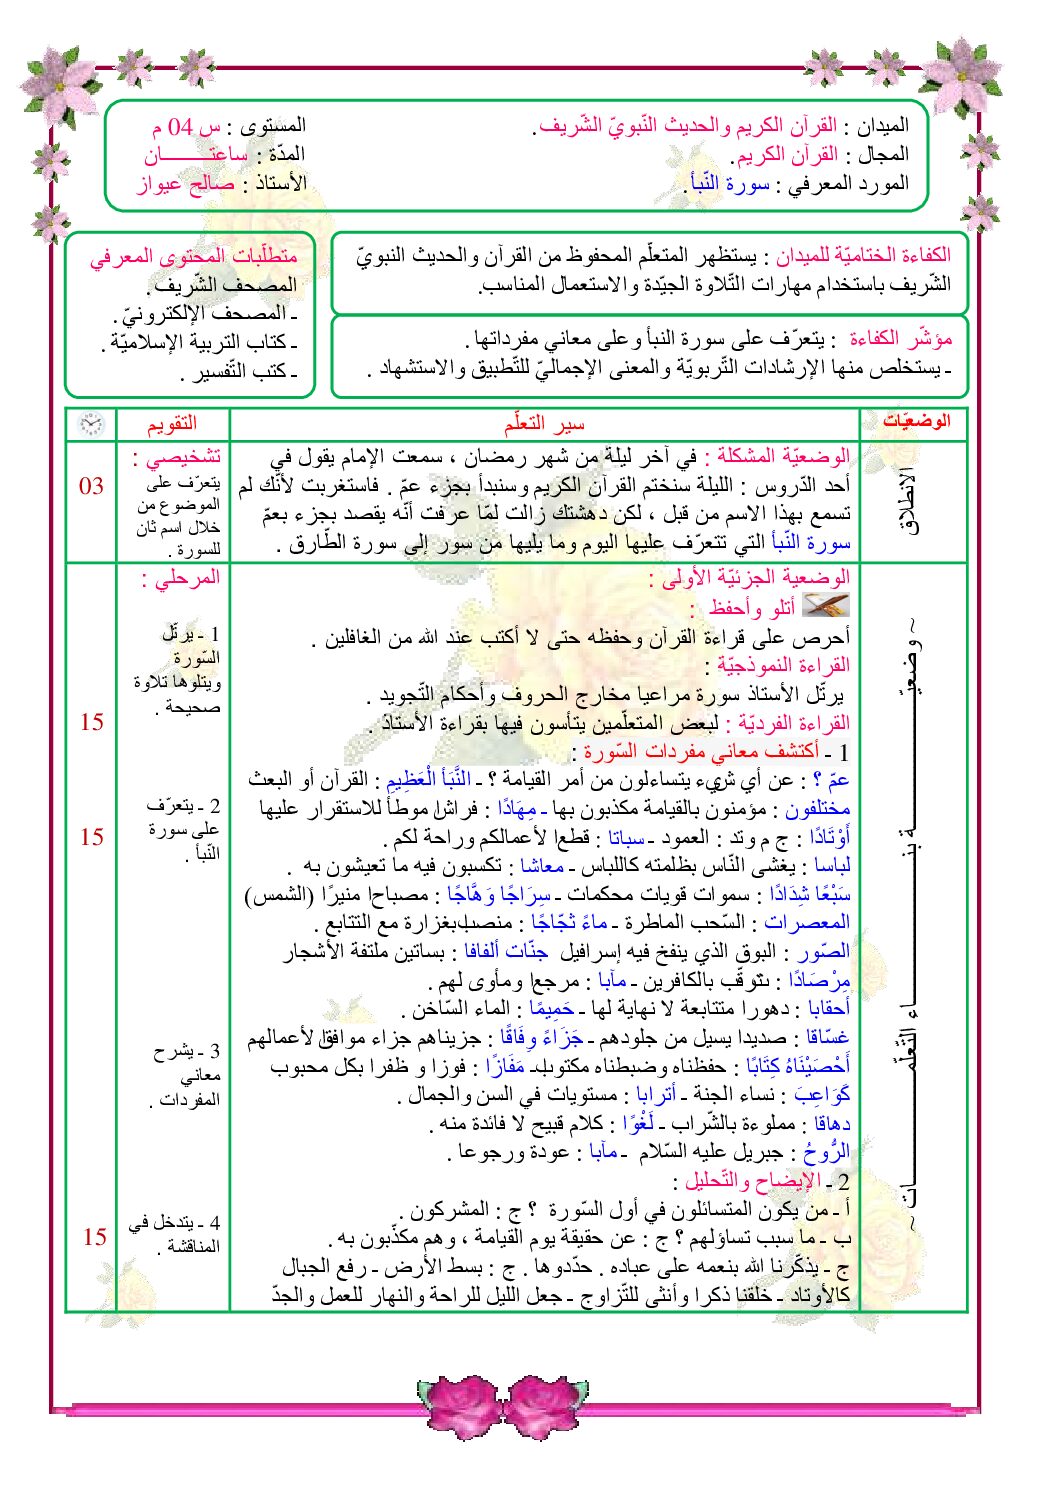 الميدان : القرآن الكريم والحديث النّبويّ الشّريف.
المجال : القرآن الكريم.
المورد المعرفي : سورة النّبأ.
المستوى : س 04 م
المدّة : ساعتـــــــــان
الأستاذ : صالح عيواز
الكفاءة الختاميّة للميدان : يستظهر المتعلّم المحفوظ من القرآن والحديث النبويّ
الشّريف باستخدام مهارات التّلاوة الجيّدة والاستعمال المناسب.
مؤشّر الكفاءة : يتعرّف على سورة النبأ وعلى معاني مفرداتها .
ـ يستخلص منها الإرشادات التّربويّة والمعنى الإجماليّ للتّطبيق والاستشهاد .
متطلّبات المحتوى المعرفي
المصحف الشّريف .
ـ المصحف الإلكترونيّ .
ـ كتاب التربية الإسلاميّة .
ـ كتب التّفسير .
الوضعيّات
سير التعلّم
التقويم
الانطلاق
الوضعيّة المشكلة : في آخر ليلة من شهر رمضان ، سمعت الإمام يقول في
أحد الدّروس : الليلة سنختم القرآن الكريم وسنبدأ بجزء عمّ . فاستغربت لأنّك لم
تسمع بهذا الاسم من قبل ، لكن دهشتك زالت لمّا عرفت أنّه يقصد بجزء بعمّ
سورة النّبأ التي تتعرّف عليها اليوم وما يليها من سور إلى سورة الطّارق .
تشخيصي :
يتعرّف على
الموضوع من
خلال اسم ثان
للسورة .
03
~ وضعيّـــــــــة بنـــــــــاء التّعلّمـــــــــات ~
الوضعية الجزئيّة الأولى :
أتلو وأحفظ :
أحرص على قراءة القرآن وحفظه حتى لا أكتب عند الله من الغافلين .
القراءة النموذجيّة :
يرتّل الأستاذ سورة مراعيا مخارج الحروف وأحكام التّجويد .
القراءة الفرديّة : لبعض المتعلّمين يتأسون فيها بقراءة الأستاذ .
1 ـ أكتشف معاني مفردات السّورة :
عمّ ؟ : عن أي شيء يتساءلون من أمر القيامة ؟ ـ النَّبَأ الْعَظِيمِ : القرآن أو البعث
مختلفون : مؤمنون بالقيامة مكذبون بها ـ مِهَادًا : فراشا موطأ للاستقرار عليها
أَوْتَادًا : ج م وتد : العمود ـ سباتا : قطعا لأعمالكم وراحة لكم .
لباسا : يغشى النّاس بظلمته كاللباس ـ معاشا : تكسبون فيه ما تعيشون به .
سَبْعًا شِدَادًا : سموات قويات محكمات ـ سِرَاجًا وَهَّاجًا : مصباحا منيرًا (الشمس)
المعصرات : السّحب الماطرة ـ ماءً ثجَّاجًا : منصبا بغزارة مع التتابع .
الصّور : البوق الذي ينفخ فيه إسرافيل جنّات ألفافا : بساتين ملتفة الأشجار
مِرْصَادًا : تتوقّب بالكافرين ـ مآبا : مرجعا ومأوى لهم .
أحقابا : دهورا متتابعة لا نهاية لها ـ حَمِيمًا : الماء السّاخن .
غسّاقا : صديدا يسيل من جلودهم ـ جَزَاءً وِفَاقًا : جزيناهم جزاء موافقا لأعمالهم
أَحْصَيْنَاهُ كِتَابًا : حفظناه وضبطناه مكتوبا ـ مَفَازًا : فوزا و ظفرا بكل محبوب
كَوَاعِبَ : نساء الجنة ـ أترابا : مستويات في السن والجمال .
دهاقا : مملوءة بالشّراب ـ لَغْوًا : كلام قبيح لا فائدة منه .
الرُّوحُ : جبريل عليه السّلام ـ مآبا : عودة ورجوعا .
2 ـ الإيضاح والتّحليل :
أ ـ من يكون المتسائلون في أول السّورة ؟ ج : المشركون .
ب ـ ما سبب تساؤلهم ؟ ج : عن حقيقة يوم القيامة ، وهم مكذّبون به .
ج ـ يذكّرنا الله بنعمه على عباده . حدّدوها . ج : بسط الأرض ـ رفع الجبال
كالأوتاد ـ خلقنا ذكرا وأنثى للتّزاوج ـ جعل الليل للراحة والنهار للعمل والجدّ
المرحلي :
1 ـ يرتّل
السّورة
ويتلوها تلاوة
صحيحة .
2 ـ يتعرّف
على سورة
النّبأ .
3 ـ يشرح
معاني
المفردات .
4 ـ يتدخل في
المناقشة .
15
15
15